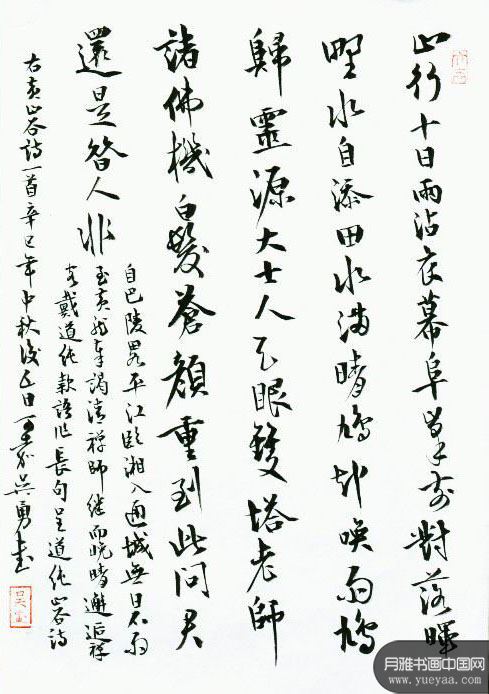 山行十日雨沾衣幕阜峯前對落暉
野水自添田水滿晴鳩却喚雨鳩
歸靈源大士人天眼雙塔老師
諸佛機白髮蒼顏重到此問君
還是昔人非
自巴陵畧平江臨湘入通城無日不雨
至黃龍奉謁清禪師继而晚晴邂逅禪
客戴道純款語作長句呈道純山谷詩
右黃山谷詩一首辛巳年中秋後五日吳勇書
月雅书画中国网
www.yueyaa.com